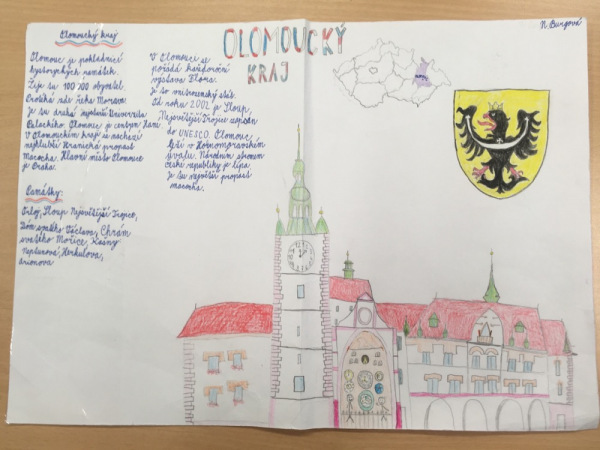 N. Burgová
OLOMOUCKÝ
KRAJ
Olomoucký kraj
Olomouc je pokladnicí
hystorických památek.
Žije zde 100 000 obyvatel.
Protéká zde řeka Morava.
Je zde druhá nejstarší Univerzita
Palackého. Olomouc je centrem Hané.
V Olomouckém kraji se nachází
nejhlubší Hranická propast
Macocha. Hlavní město Olomouce
je Praha.
Památky:
Orloj, Sloup Nejsvětější Trojice,
Dóm svatého Václava, Chrám
svatého Mořice, Kašny
Neptunova, Herkulova,
Arionova
V Olomouci se
pořádá každoroční
výstava Flora.
Je to univerzitní město.
Od roku 2002 je Sloup
Nejsvětější Trojice zapsán
do UNESCO. Olomouc
leží v Hornomoravském
úvalu. Národním stromem
České republiky je lípa.
Je tu největší propast
macocha.